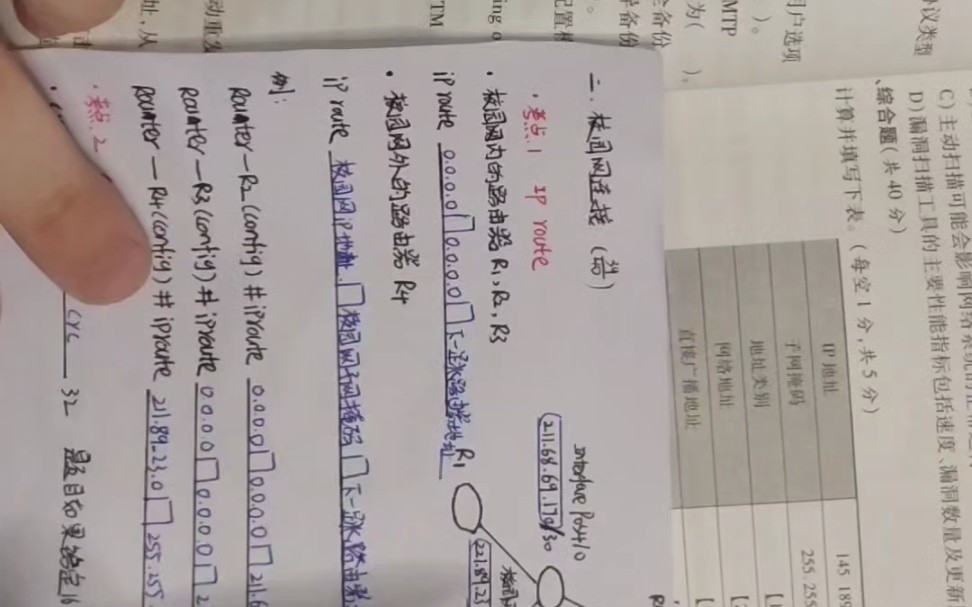 二. 校园网连接
考点.1 IP route
· 校园网内的路由器 R1, R2, R3
iP route 0.0.0.0 0.0.0.0 下一跳路由器地址
· 校园网外的路由器 R4
iP route 校园网iP地址 校园网子网掩码 下一跳路由器
例:
Rounter—R2(config)#iproute 0.0.0.0 0.0.0.0 21.6
Rounter—R3(config)#iproute 0.0.0.0 0.0.0.0 2
Rounter—R4(config)#iproute 21.89.23.0 255.255.
· 考点.2
cyc 32 题目如果给定16
R1
Interface POS4/0
校园
C)主动扫描可能会影响网络系统的正常
D)漏洞扫描工具的主要性能指标包括速度、漏洞数量及更新
、综合题(共 40 分)
计算并填写下表。(每空 1 分,共 5 分)
IP 地址 145.18
子网掩码 255.255
地址类别
网络地址
直接广播地址
协议类型
用户选项
)。
MTP
为(
)。
全备份
配置
ing
TM
动重发
址,从